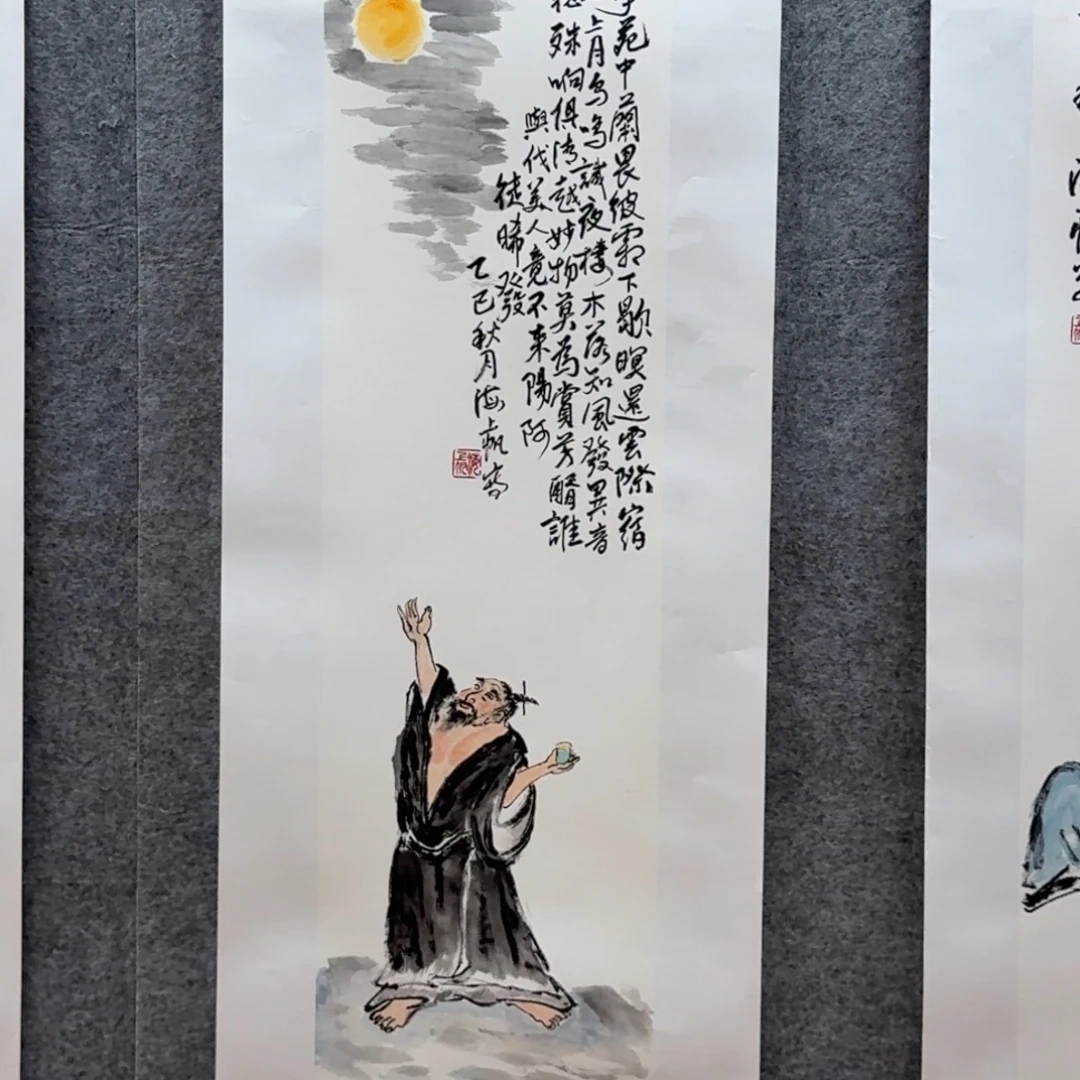 苑中蘭畏彼霜下歇暝還雲際宿
上月鳥鳴識夜棲木落知風發異音
殊响俱清越妙物莫為賞芳醑誰
與伐美人竟不來陽阿
徒晞發
乙巳秋月海帆寫